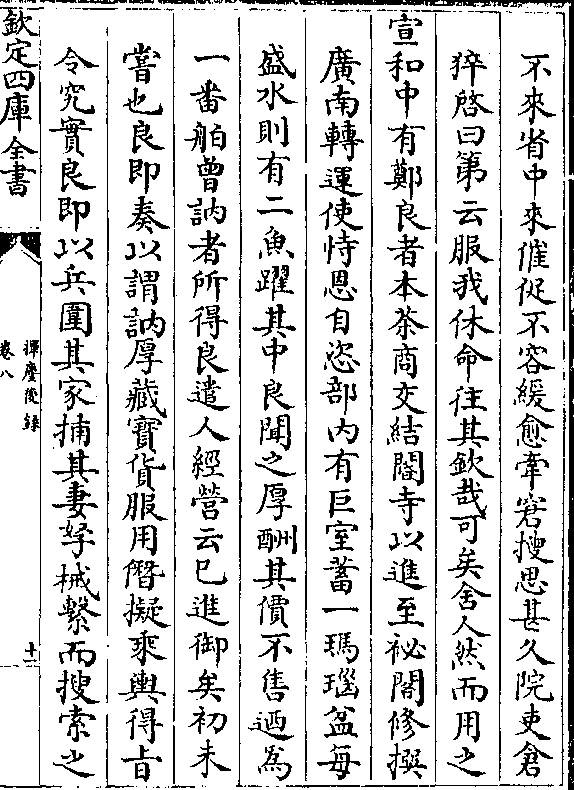 不來省中來催促不容緩愈牽窘搜思甚久院吏倉
猝啓曰第云服我休命往其欽哉可矣舍人然而用之
宣和中有鄭良者本茶商交結閹寺以進至祕閣修撰
廣南轉運使恃恩自恣部內有巨室蓄一瑪瑙盆每
盛水則有二魚躍其中良聞之厚酬其價不售迺爲
一番舶曾訥者所得良遣人經營云已進御矣初未
嘗也良即奏以謂訥厚藏寳貨服用僭擬乘輿得㫖
令究實良即以兵圍其家捕其妻孥械繫而搜索之
欽定四庫全書
揮麈後録
卷八
十一